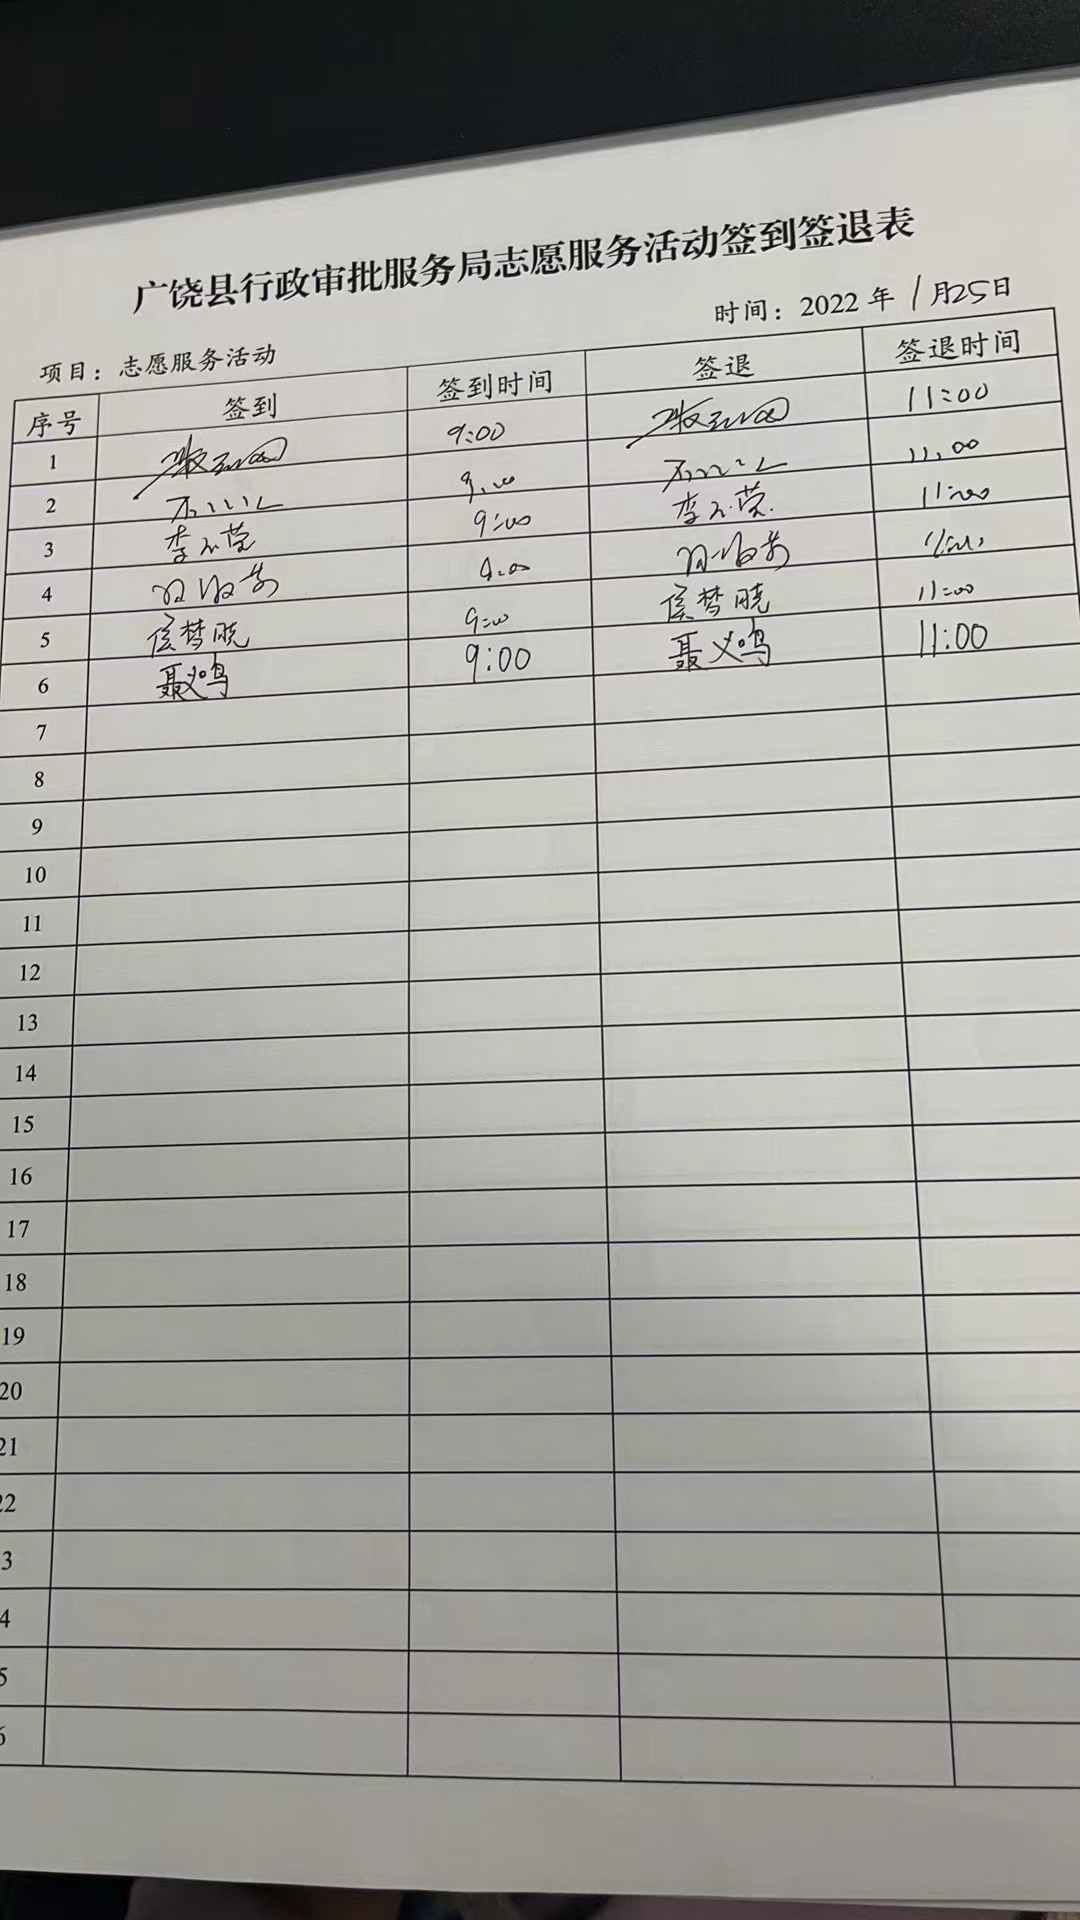 广饶县行政审批服务局志愿服务活动签到签退表
时间：2022年1月25日
项目：志愿服务活动
序号 签到 签到时间 签退 签退时间
1 9:00 11:00
2 9:00 11:00
3 9:00 11:00
4 9:00
5 侯梦晓 9:00 侯梦晓 11:00
6 聂义鸣 9:00 聂义鸣 11:00
7
8
9
10
11
12
13
14
15
16
17
18
19
20
21
22
3
4
5
6